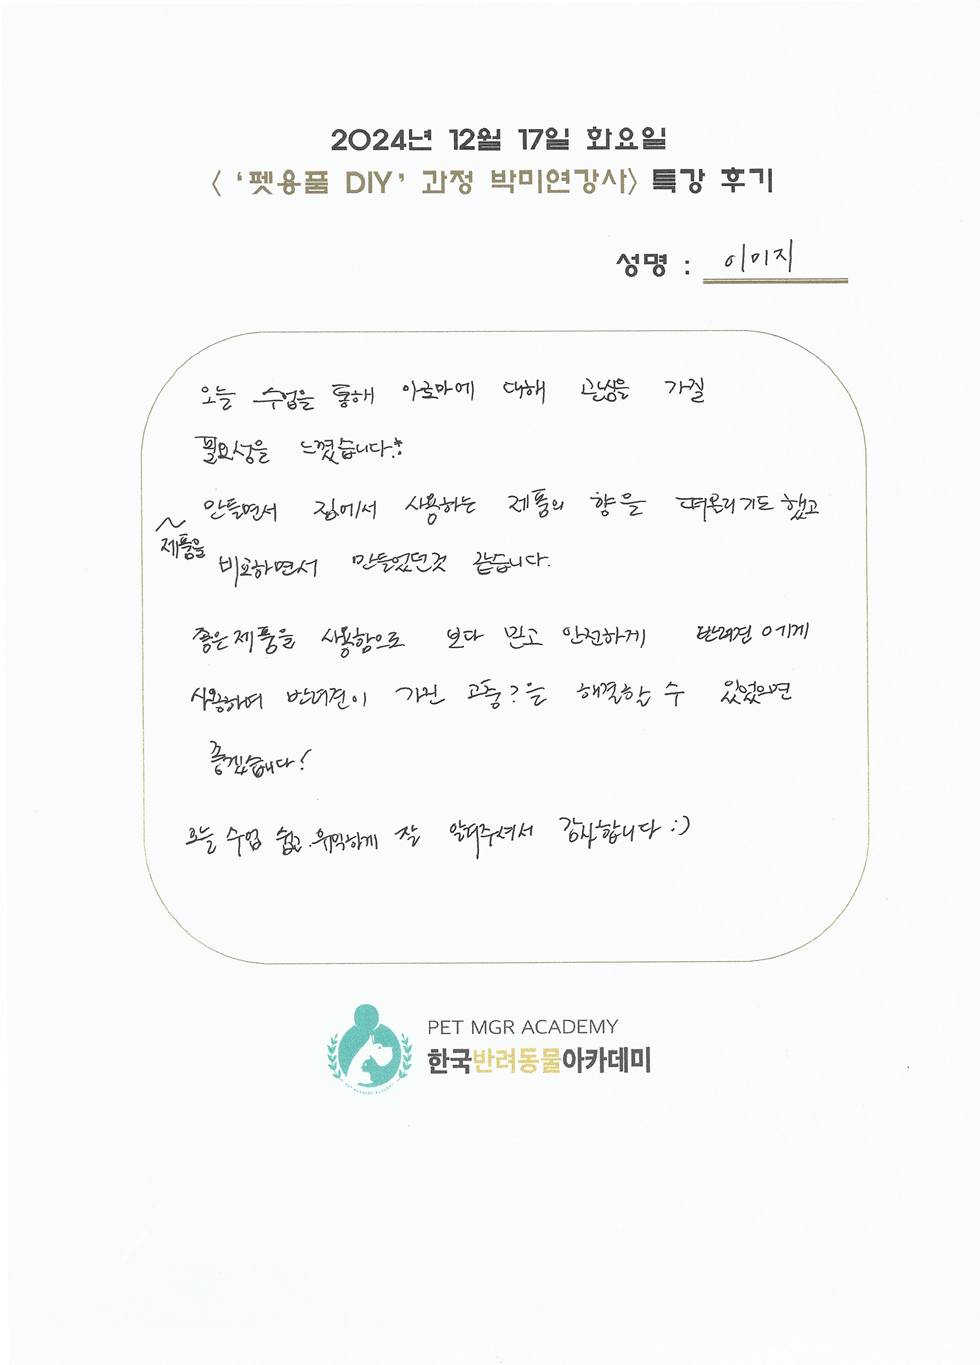 2024년 12월 17일 화요일
< '펫용품 DIY' 과정 박미연강사> 특강 후기
성명 : 이미지
오늘 수업을 통해 아로마에 대해 관심을 가질
필요성을 느꼈습니다!
제품을 만들면서 집에서 사용하는 제품의 향을 떠올리기도 했고
비교하면서 만들었던것 같습니다.
좋은 제품을 사용함으로 보다 믿고 안전하게 반려견에게
사용하며 반려견이 가진 고충?을 해결할 수 있었으면
좋겠습니다!
오늘 수업 쉽고 유익하게 잘 알려주셔서 감사합니다 :)
PET MGR ACADEMY
한국반려동물아카데미